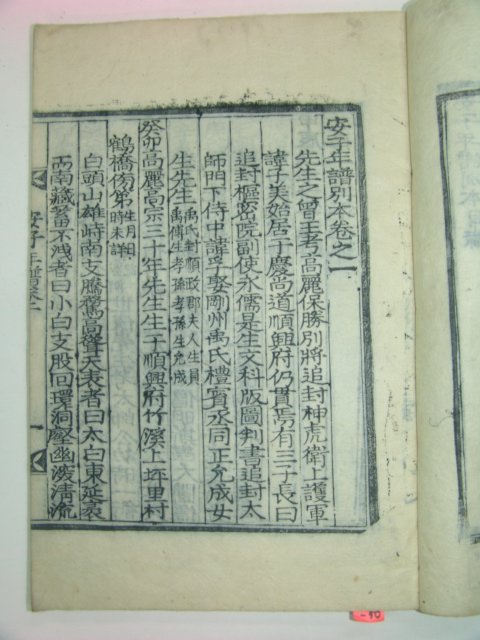 安子年譜別本卷之一
先生之曾王考高麗保勝別將追封神虎衛上護軍
諱子美始居于慶尙道順興府仍貫焉有三子長曰
追封樞密院副使永儒是生文科版圖判書追封太
師門下侍中諱孚娶剛州禹氏禮賓丞同正允成女
生先生禹氏封順政郡夫人生員
禹傅生孝孫孝孫生允成
癸卯高麗高宗三十年先生生于順興府竹溪上坪里村
鶴橋傍第生月日
時未詳
白頭山雄峙南支騰騖高聳天表者曰太白東延袤
而南藏蓄不洩者曰小白支股回環洞壑幽㴱清流
安子年譜卷之一
一
-90